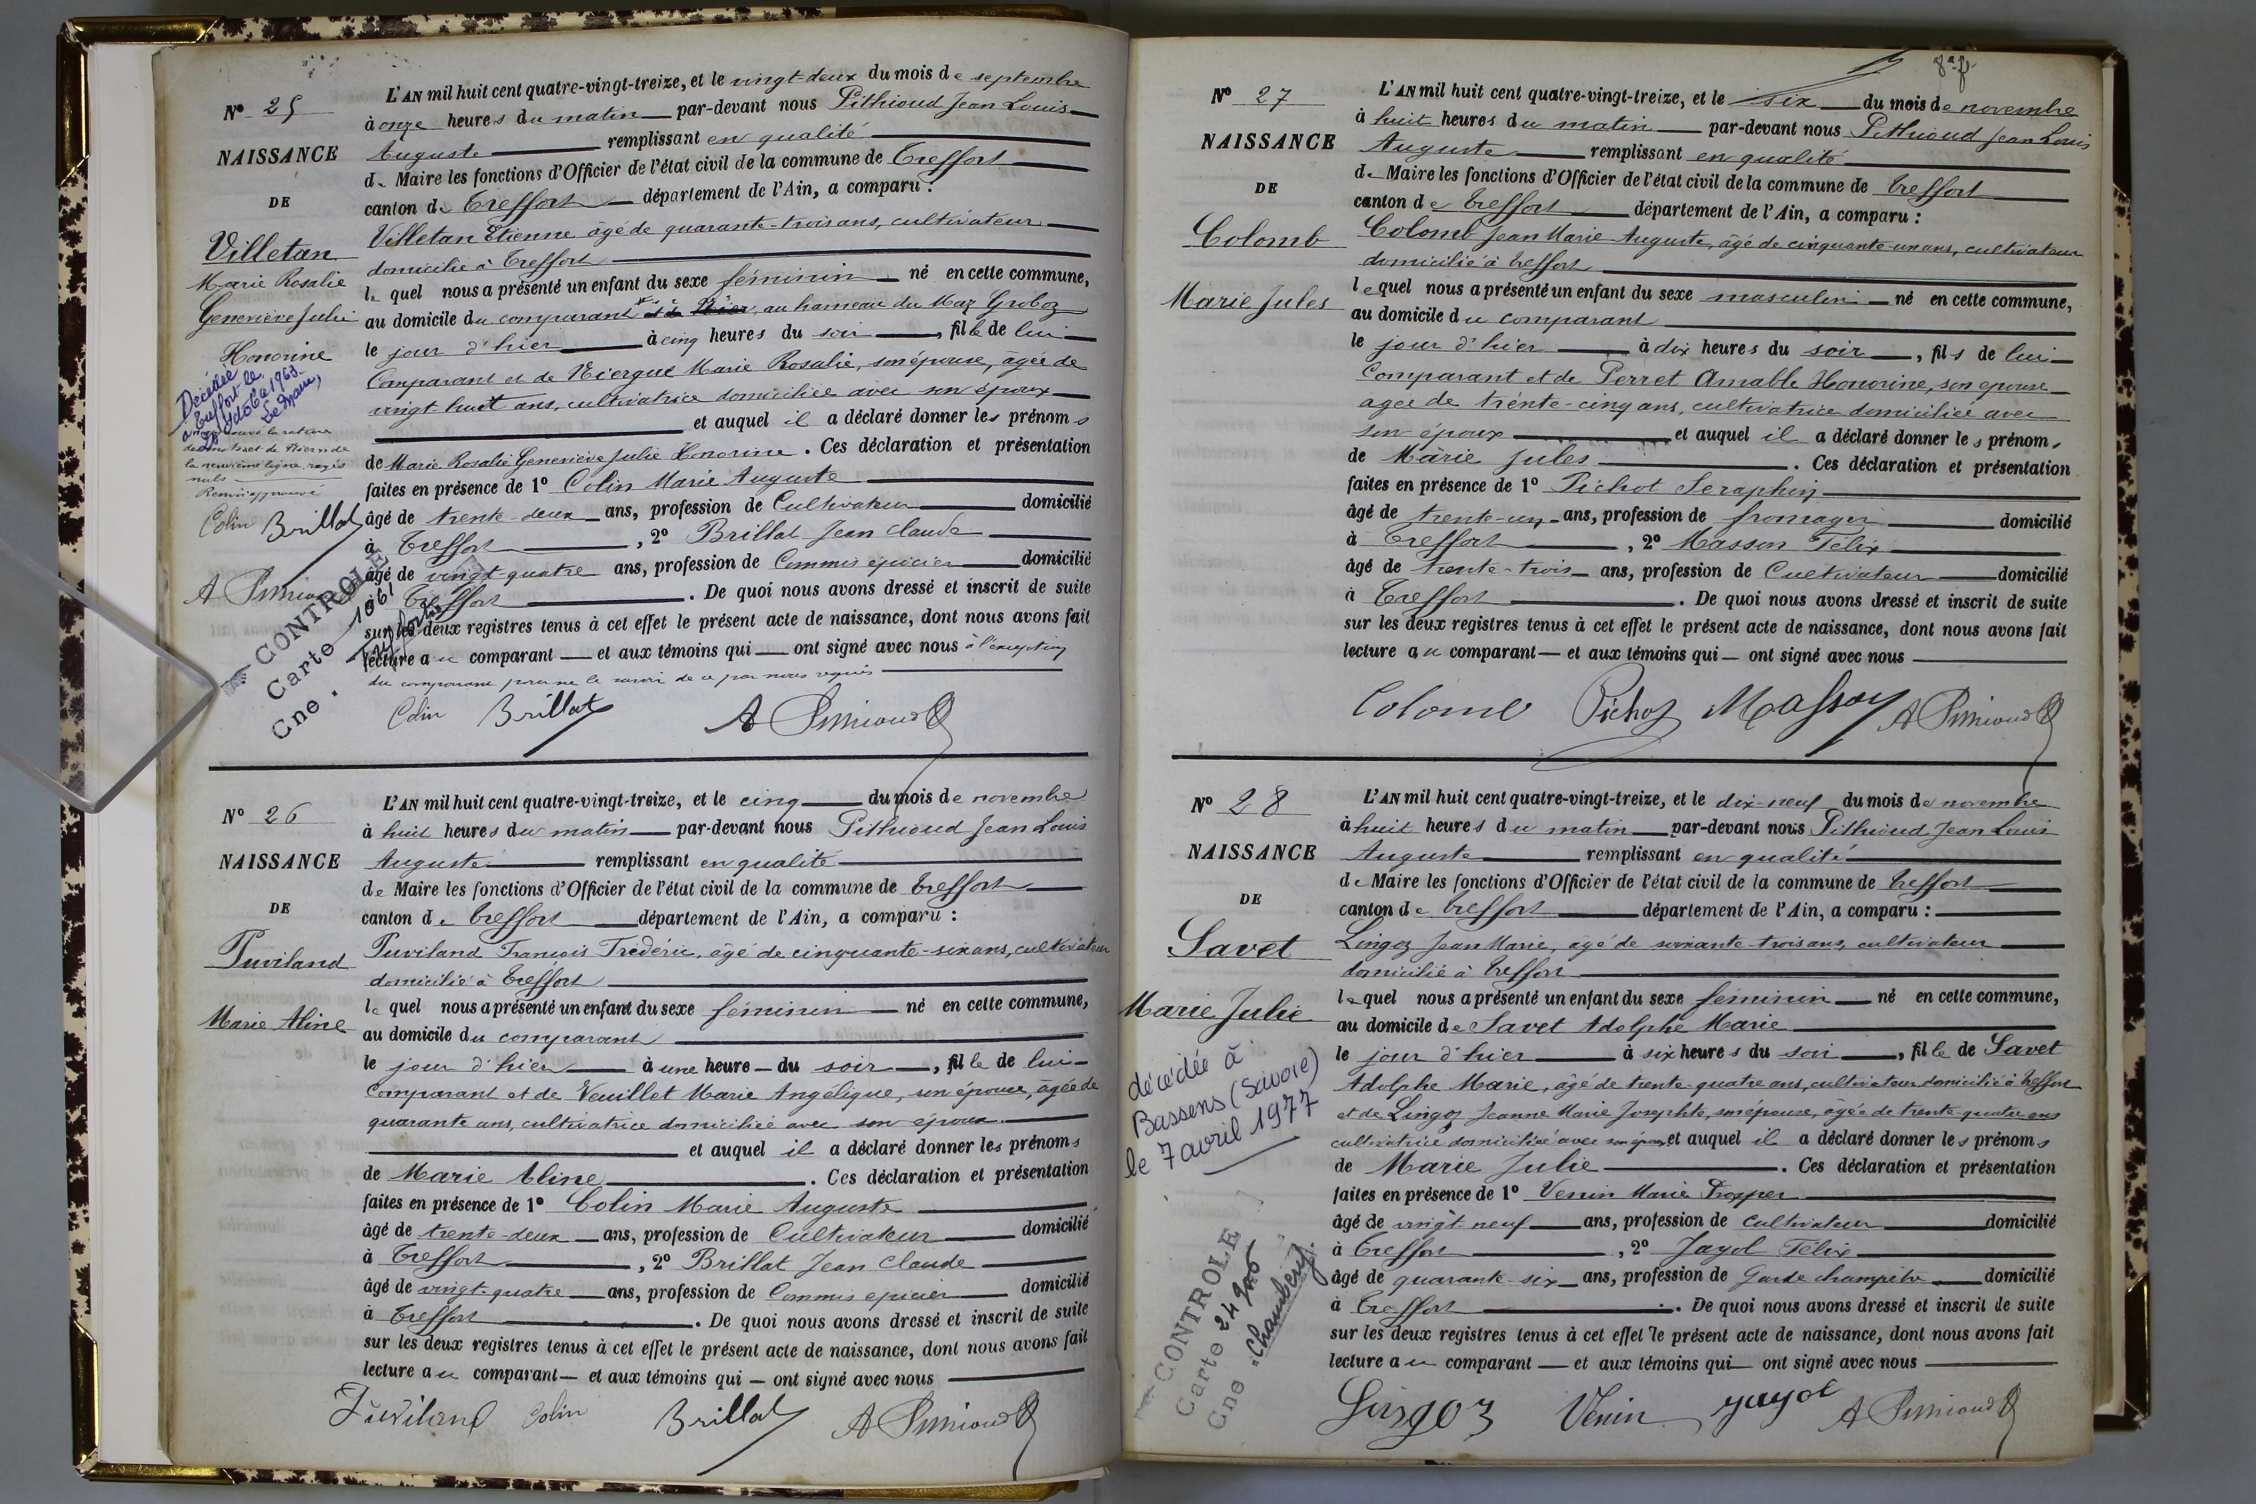 N° 25
NAISSANCE
DE
Villetan
Marie Rosalie
Geneviève Julie
Honorine
Décédée
à Treffort le
1963
Le Maire,
la neuvième ligne rayés
nuls
Renvoi approuvé
Colin Brillat
CONTROLE
Carte 1961
Cne. Treffort
L'AN mil huit cent quatre-vingt-treize, et le vingt-deux du mois de septembre
à onze heures du matin par-devant nous Pithioud Jean Louis
Auguste remplissant en qualité
de Maire les fonctions d'Officier de l'état civil de la commune de Treffort
canton de Treffort département de l'Ain, a comparu :
Villetan Etienne âgé de quarante-trois ans, cultivateur
domicilié à Treffort
lequel nous a présenté un enfant du sexe féminin né en cette commune,
au domicile du comparant au hameau du Maz Groboz
le jour d'hier à cinq heures du soir, fille de lui
Comparant et de Niergue Marie Rosalie, son épouse, âgée de
vingt huit ans, cultivatrice domiciliée avec son époux
et auquel il a déclaré donner les prénoms
de Marie Rosalie Geneviève Julie Honorine. Ces déclaration et présentation
faites en présence de 1° Colin Marie Auguste
âgé de trente-deux ans, profession de Cultivateur domicilié
à Treffort, 2° Brillat Jean Claude
âgé de vingt-quatre ans, profession de Commis épicier domicilié
à Treffort. De quoi nous avons dressé et inscrit de suite
sur les deux registres tenus à cet effet le présent acte de naissance, dont nous avons fait
lecture au comparant et aux témoins qui ont signé avec nous à l'exception
du comparant pour ne le savoir de ce par nous requis
Colin Brillat A Pithioud
N° 26
NAISSANCE
DE
Puviland
Marie Aline
L'AN mil huit cent quatre-vingt-treize, et le cinq du mois de novembre
à huit heures du matin par-devant nous Pithioud Jean Louis
Auguste remplissant en qualité
de Maire les fonctions d'Officier de l'état civil de la commune de Treffort
canton de Treffort département de l'Ain, a comparu :
Puviland François Frédéric, âgé de cinquante-six ans, cultivateur
domicilié à Treffort
lequel nous a présenté un enfant du sexe féminin né en cette commune,
au domicile du comparant
le jour d'hier à une heure du soir, fille de lui
Comparant et de Veuillet Marie Angélique, son épouse, âgée de
quarante ans, cultivatrice domiciliée avec son époux
et auquel il a déclaré donner les prénoms
de Marie Aline. Ces déclaration et présentation
faites en présence de 1° Colin Marie Auguste
âgé de trente-deux ans, profession de Cultivateur domicilié
à Treffort, 2° Brillat Jean Claude
âgé de vingt-quatre ans, profession de Commis épicier domicilié
à Treffort. De quoi nous avons dressé et inscrit de suite
sur les deux registres tenus à cet effet le présent acte de naissance, dont nous avons fait
lecture au comparant et aux témoins qui ont signé avec nous
Puviland Colin Brillat A Pithioud
N° 27
NAISSANCE
DE
Colomb
Marie Jules
L'AN mil huit cent quatre-vingt-treize, et le six du mois de novembre
à huit heures du matin par-devant nous Pithioud Jean Louis
Auguste remplissant en qualité
de Maire les fonctions d'Officier de l'état civil de la commune de Treffort
canton de Treffort département de l'Ain, a comparu :
Colomb Jean Marie Auguste, âgé de cinquante-un ans, cultivateur
domicilié à Treffort
lequel nous a présenté un enfant du sexe masculin né en cette commune,
au domicile du comparant
le jour d'hier à dix heures du soir, fils de lui
Comparant et de Perret Amable Honorine, son épouse
agée de trente-cinq ans, cultivatrice domiciliée avec
son époux et auquel il a déclaré donner les prénoms
de Marie Jules. Ces déclaration et présentation
faites en présence de 1° Pichot Seraphin
âgé de trente-un ans, profession de fromager domicilié
à Treffort, 2° Masson Félix
âgé de trente-trois ans, profession de Cultivateur domicilié
à Treffort. De quoi nous avons dressé et inscrit de suite
sur les deux registres tenus à cet effet le présent acte de naissance, dont nous avons fait
lecture au comparant et aux témoins qui ont signé avec nous
Colomb Pichot Masson A Pithioud
N° 28
NAISSANCE
DE
Savet
Marie Julie
décédée à
Bassens (Savoie)
le 7 avril 1977
CONTROLE
Carte
Cne. Chambéry.
L'AN mil huit cent quatre-vingt-treize, et le dix-neuf du mois de novembre
à huit heures du matin par-devant nous Pithioud Jean Louis
Auguste remplissant en qualité
de Maire les fonctions d'Officier de l'état civil de la commune de Treffort
canton de Treffort département de l'Ain, a comparu :
Lingoz Jean Marie, âgé de soixante-trois ans, cultivateur
domicilié à Treffort
lequel nous a présenté un enfant du sexe féminin né en cette commune,
au domicile de Savet Adolphe Marie
le jour d'hier à six heures du soir, fille de Savet
Adolphe Marie, âgé de trente-quatre ans, cultivateur domicilié à Treffort
et de Lingoz Jeanne Marie Josephte, son épouse, âgée de trente-quatre ans
cultivatrice domiciliée avec son époux et auquel il a déclaré donner les prénoms
de Marie Julie. Ces déclaration et présentation
faites en présence de 1° Venin Marie Prosper
âgé de vingt-neuf ans, profession de cultivateur domicilié
à Treffort, 2° Jayol Félix
âgé de quarante-six ans, profession de Garde champêtre domicilié
à Treffort. De quoi nous avons dressé et inscrit de suite
sur les deux registres tenus à cet effet le présent acte de naissance, dont nous avons fait
lecture au comparant et aux témoins qui ont signé avec nous
Lingoz Venin Jayol A Pithioud